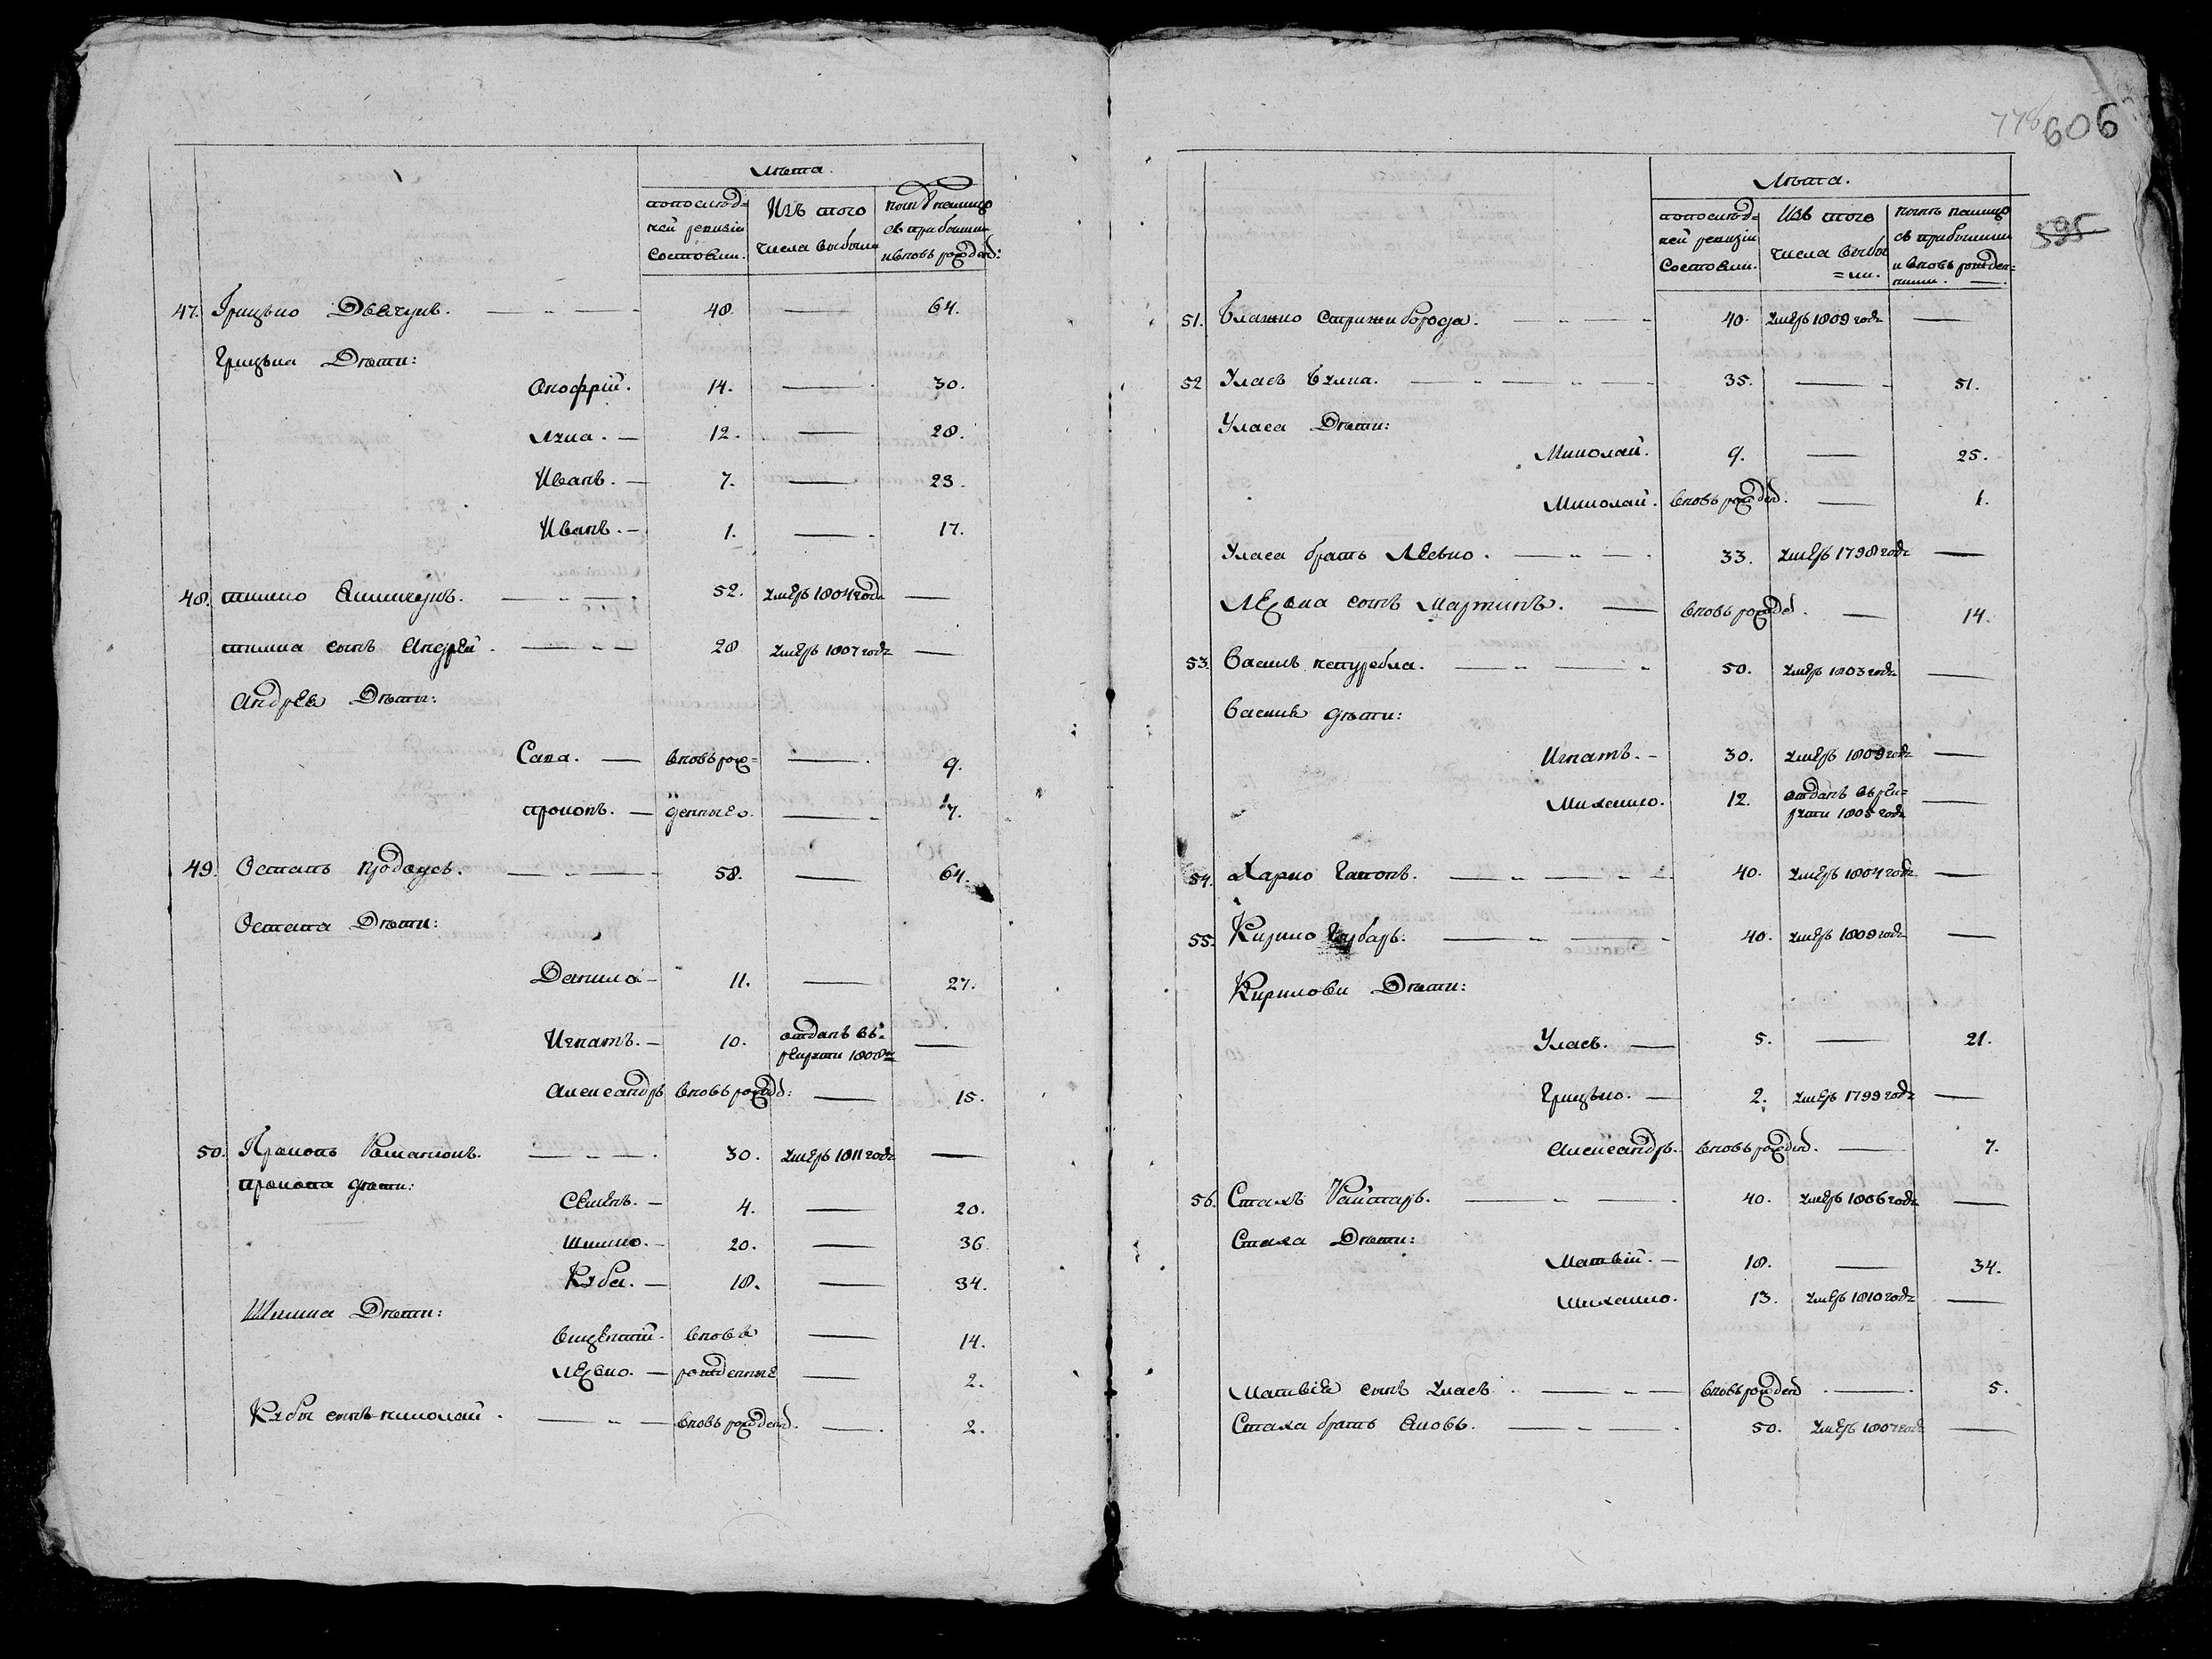 Лѣта.
по послѣд=
ней ревизіи
состояли.
Изъ того
числа выбыли
нынѣ на лицо
съ прибылыми
и вновь рожден:
47. Грицько 48. — 64.
Грицька Дѣти:
Онофрій. 14. — 30.
Лука. — 12. — 28.
Иванъ. — 7. — 23.
Иванъ. — 1. — 17.
48. 52. умеръ 1804 года —
сынъ Андрей. 28 умеръ 1807 года —
Андрея Дѣти:
Сава. — вновь рож= — 9.
прокопъ. — денные. — 7.
49. Остапъ 58. — 64.
Остапа Дѣти:
Данило — 11. — 27.
Игнатъ. — 10. отданъ въ
рекруты —
Александръ вновь рожд: — 15.
50. Прокопъ 30. умеръ 1811 года —
прокопа дѣти:
Семенъ. — 4. — 20.
Шимко. — 20. — 36
Куба. — 18. — 34.
Шимка Дѣти:
Викентій. вновь — 14.
Левко. — рожденные — 2.
Кубы сынъ николай. — вновь рожден. — 2.
778 606
595
Лѣта.
по послѣд=
ней ревизіи
состояли.
Изъ того
числа выбы
=ли.
нынѣ на лицо
съ прибылыми
и вновь рожден=
ными.
51. Влашко Стрижиборода. 40. умеръ 1809 года —
52 Уласъ 35. — 51.
Уласа Дѣти:
Миколай. 9. — 25.
Миколай. вновь рожден. — 1.
Уласа братъ Левко. 33. умеръ 1798 года —
Левка сынъ Мартинъ. — вновь рожд. — 14.
53. Василь 50. умеръ 1803 года —
Василя дѣти:
Игнатъ. — 30. умеръ 1809 года —
Михайло. 12. отданъ въ рек=
руты 1805 года —
54. Харко Гапонъ. 40. умеръ 1804 года —
55. Кирило 40. умеръ 1809 года —
Кирилови Дѣти:
Уласъ. — 5. — 21.
Грицько. — 2. умеръ 1799 года —
Александръ. вновь рожден. — 7.
56. Стахъ 40. умеръ 1806 года —
Стаха Дѣти:
Матвій. — 18. — 34.
Михайло. 13. умеръ 1810 года —
Матвія сынъ Уласъ. вновь рожден. — 5.
Стаха братъ Яковъ. 50. умеръ 1807 года —